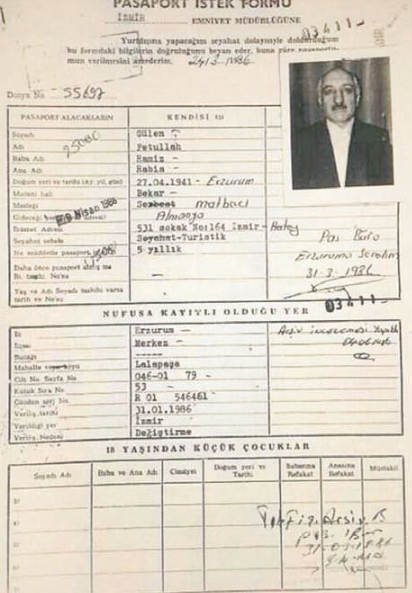 PASAPORT İSTEK FORMU
İZMİR EMNİYET MÜDÜRLÜĞÜNE
Yurtdışına yapacağım seyahat dolayısiyle doldurduğum
bu formdaki bilgilerin doğruluğunu beyan eder, buna göre
mun verilmesini 24.3.1986
03411
Dosya No 55697
PASAPORT ALACAKLARIN KENDİSİ
25000
Soyadı Gülen
Adı Fetullah
Baba Adı Ramiz
Ana Adı Rabia
Doğum yeri ve tarihi (Ay, yıl, gün) 27.04.1941 - Erzurum
Medeni hali Bekar
Mesleği Serbest matbacı
Gideceği Almanya
Nisan 1986
İkamet Adresi 531 sokak No:164 İzmir - Hatay
Seyahat sebebi Seyahat-Turistik
Ne müddetle pasaport 5 yıllık
Daha önce pasaport almış
Yaş ve Adı Soyadı tashihi varsa
tarih ve No'su
Pas Büro
Erzuruma
31-3-1986
03411
NUFUSA KAYITLI OLDUĞU YER
İli Erzurum
İlçesi Merkez
Bucağı -----
Mahalle Lalapaşa
Cilt No. Sayfa No 046-01 79
Kütük Sıra No 53
R 01 546461
Veriliş tarihi 31.01.1986
Verildiği yer İzmir
Veriliş Nedeni Değiştirme
Arşiv
18 YAŞINDAN KÜÇÜK ÇOCUKLAR
Soyadı Adı
Baba ve Ana Adı
Cinsiyet
Doğum yeri ve Tarihi
Babasına Refakat
Anasına Refakat
Müstakil
Arşiv B